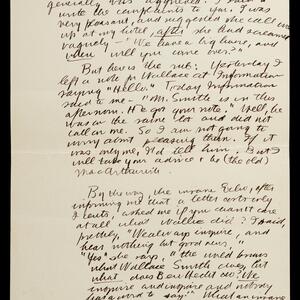 generally
write the complaints to you. I was
very pleasant, and suggested she call me
up at my hotel, after she had screamed
vaguely - "We have a big house, and
when will you come over?"
But here's the rub: Yesterday I
left a note for Wallace at Information
saying "Hello." Today Information
said to me - "Mr. Smith is in this
afternoon. He got your note." Well, he
was on the same lot and did not
call on me. So I am not going to
worry about pleasing them. If it
was only me, I'd tell him. But I
will take your advice & be (the old)
MacArthurite.
By the way, the moron Echo, after
informing me that a letter costs only
2 cents, asked me if you cared
at all what Wallie did? I said,
prettily, "We always inquire, and
hear nothing but good news,"
"Yes" she says, "the world knows
what Wallace Smith does, but
what does Ben Hecht do? We
inquire and inquire and nobody
has a word to say."